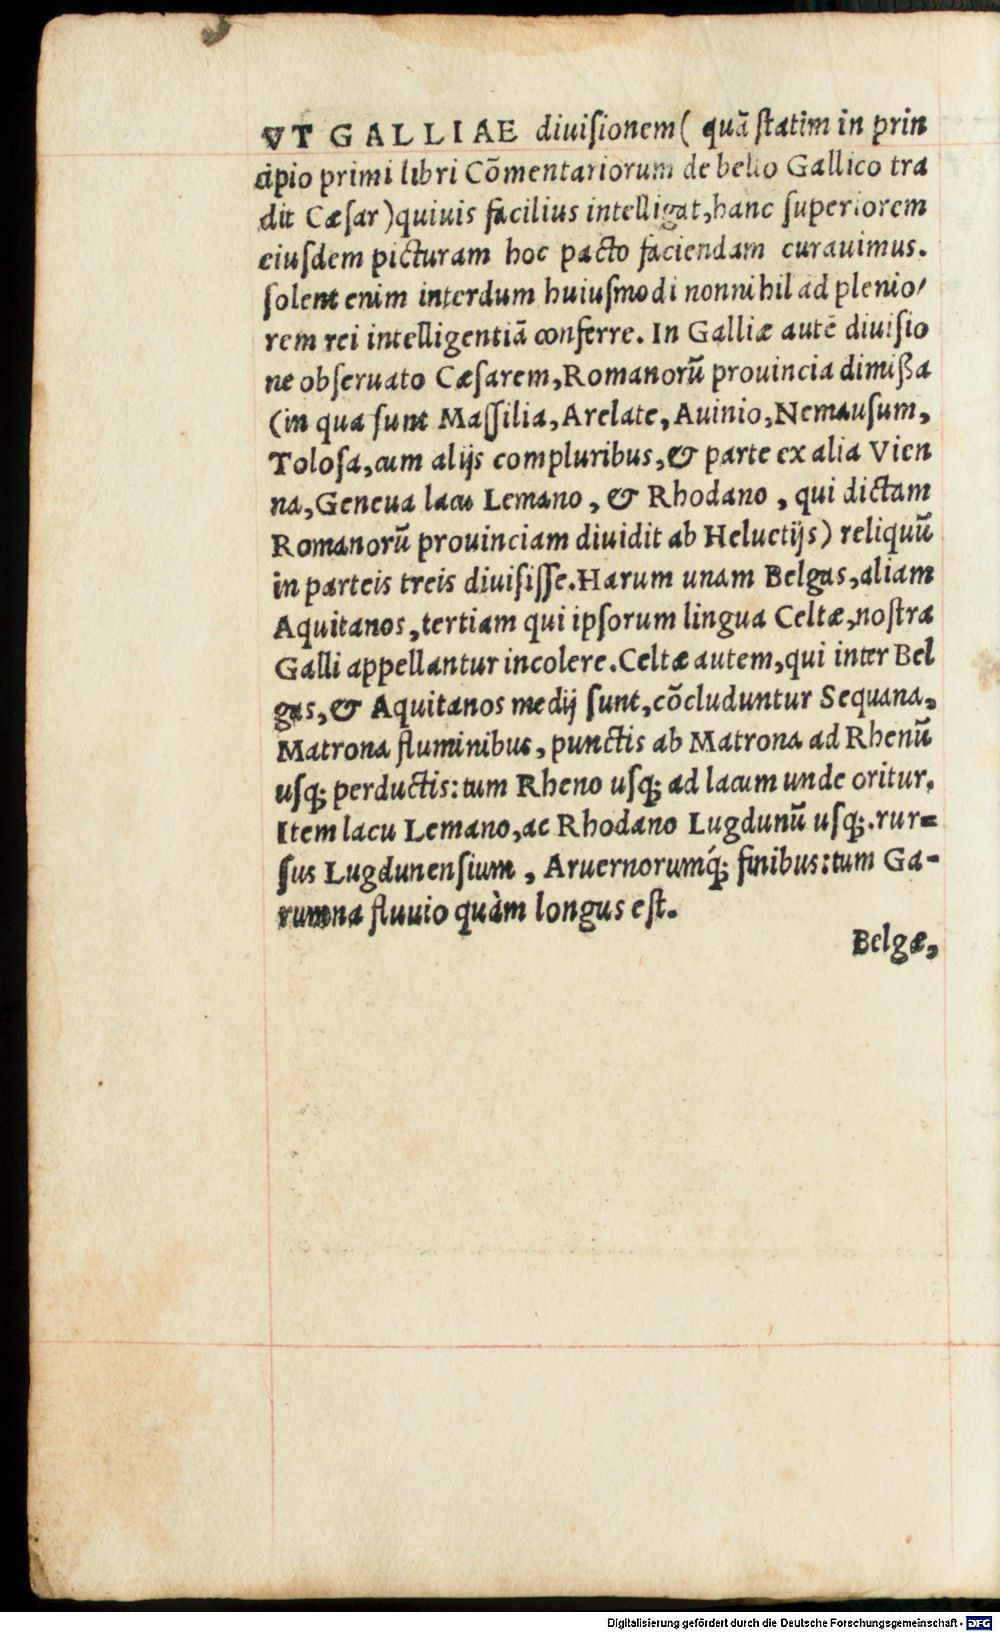 VT GALLIAE diuiſionem( quã ſtatim in prin
cipio primi libri Cõmentariorum de bello Gallico tra
dit Cæſar)quiuis facilius intelligat,hanc ſuperiorem
eiuſdem picturam hoc pacto faciendam curauimus.
ſolent enim interdum huiuſmodi nonnihil ad plenio/
rem rei intelligentiã conferre. In Galliæ autẽ diuiſio
ne obſeruato Cæſarem,Romanorũ prouincia dimiſſa
(in qua ſunt Maſſilia,Arelate,Auinio,Nemauſum,
Toloſa,cum alijs compluribus,& parte ex alia Vien
na,Geneua lacu Lemano, & Rhodano, qui dictam
Romanorũ prouinciam diuidit ab Heluetijs) reliquũ
in parteis treis diuiſiſſe.Harum unam Belgas,aliam
Aquitanos,tertiam qui ipſorum lingua Celtæ,noſtra
Galli appellantur incolere.Celtæ autem,qui inter Bel
gas,& Aquitanos medij ſunt,cõcluduntur Sequana,
Matrona fluminibus, punctis ab Matrona ad Rhenũ
uſq; perductis:tum Rheno uſq; ad lacum unde oritur.
Item lacu Lemano,ac Rhodano Lugdunũ uſq;.rur=
ſus Lugdunenſium, Aruernorumq́; finibus:tum Ga-
rumna fluuio quàm longus eſt.
Belgæ,
Digitalisierung gefördert durch die Deutsche Forschungsgemeinschaft - DFG